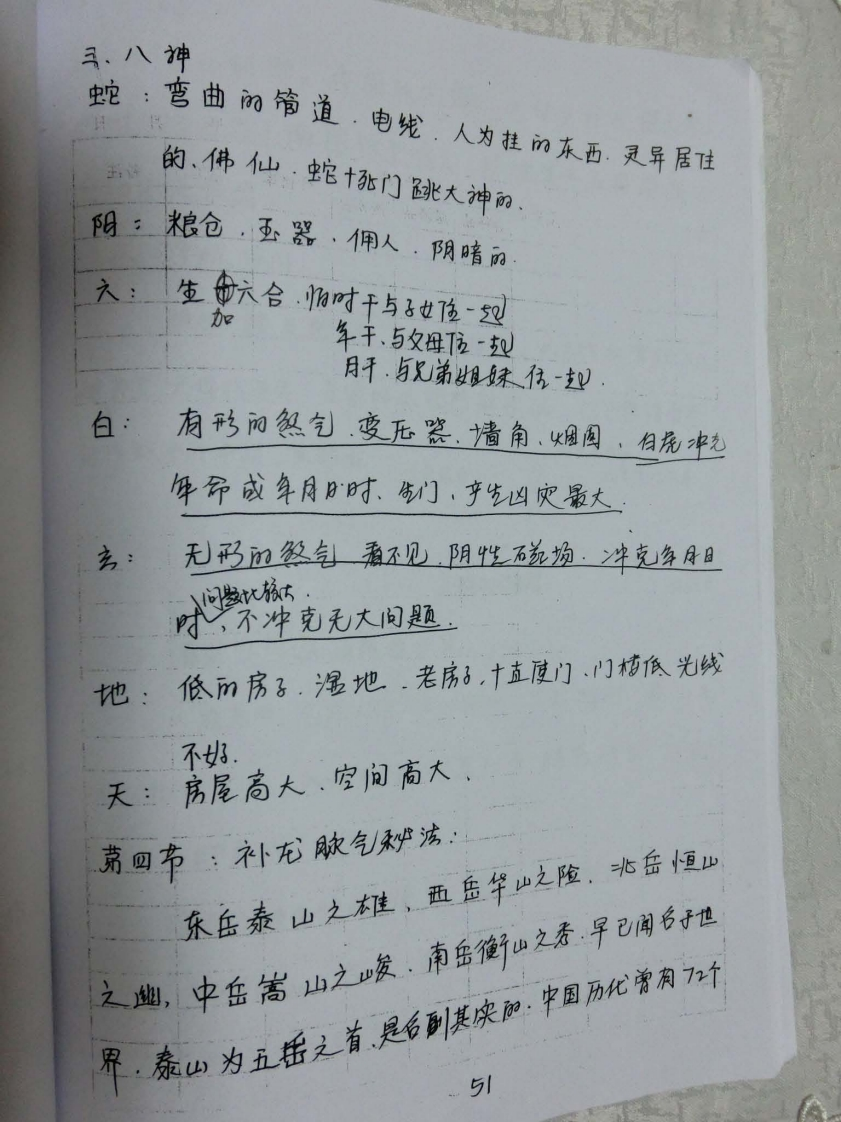 三、八神
蛇：弯曲的管道、电线、人为挂的东西、灵异居住
的、佛仙、蛇+死门跳大神的、
阴：粮仓、玉器、佣人、阴暗的、
六：生加六合、怕时干与子女位一起
年干、与父母位一起
月干、与兄弟姐妹位一起、
白：有形的煞气、变压器、墙角、烟囱、白虎冲克
年命或年月日时、生门、产生凶灾最大、
玄：无形的煞气 看不见、阴性磁场、冲克年月日
时问题比较大、不冲克无大问题、
地：低的房子、湿地、老房子、+直使门、门楼低光线
不好、
天：房屋高大、空间高大、
第四节：补龙脉气秘法：
东岳泰山之雄、西岳华山之险、北岳恒山
之幽，中岳嵩山之峻、南岳衡山之秀、早已闻名于世
界、泰山为五岳之首、是名副其实的、中国历代曾有72个
51